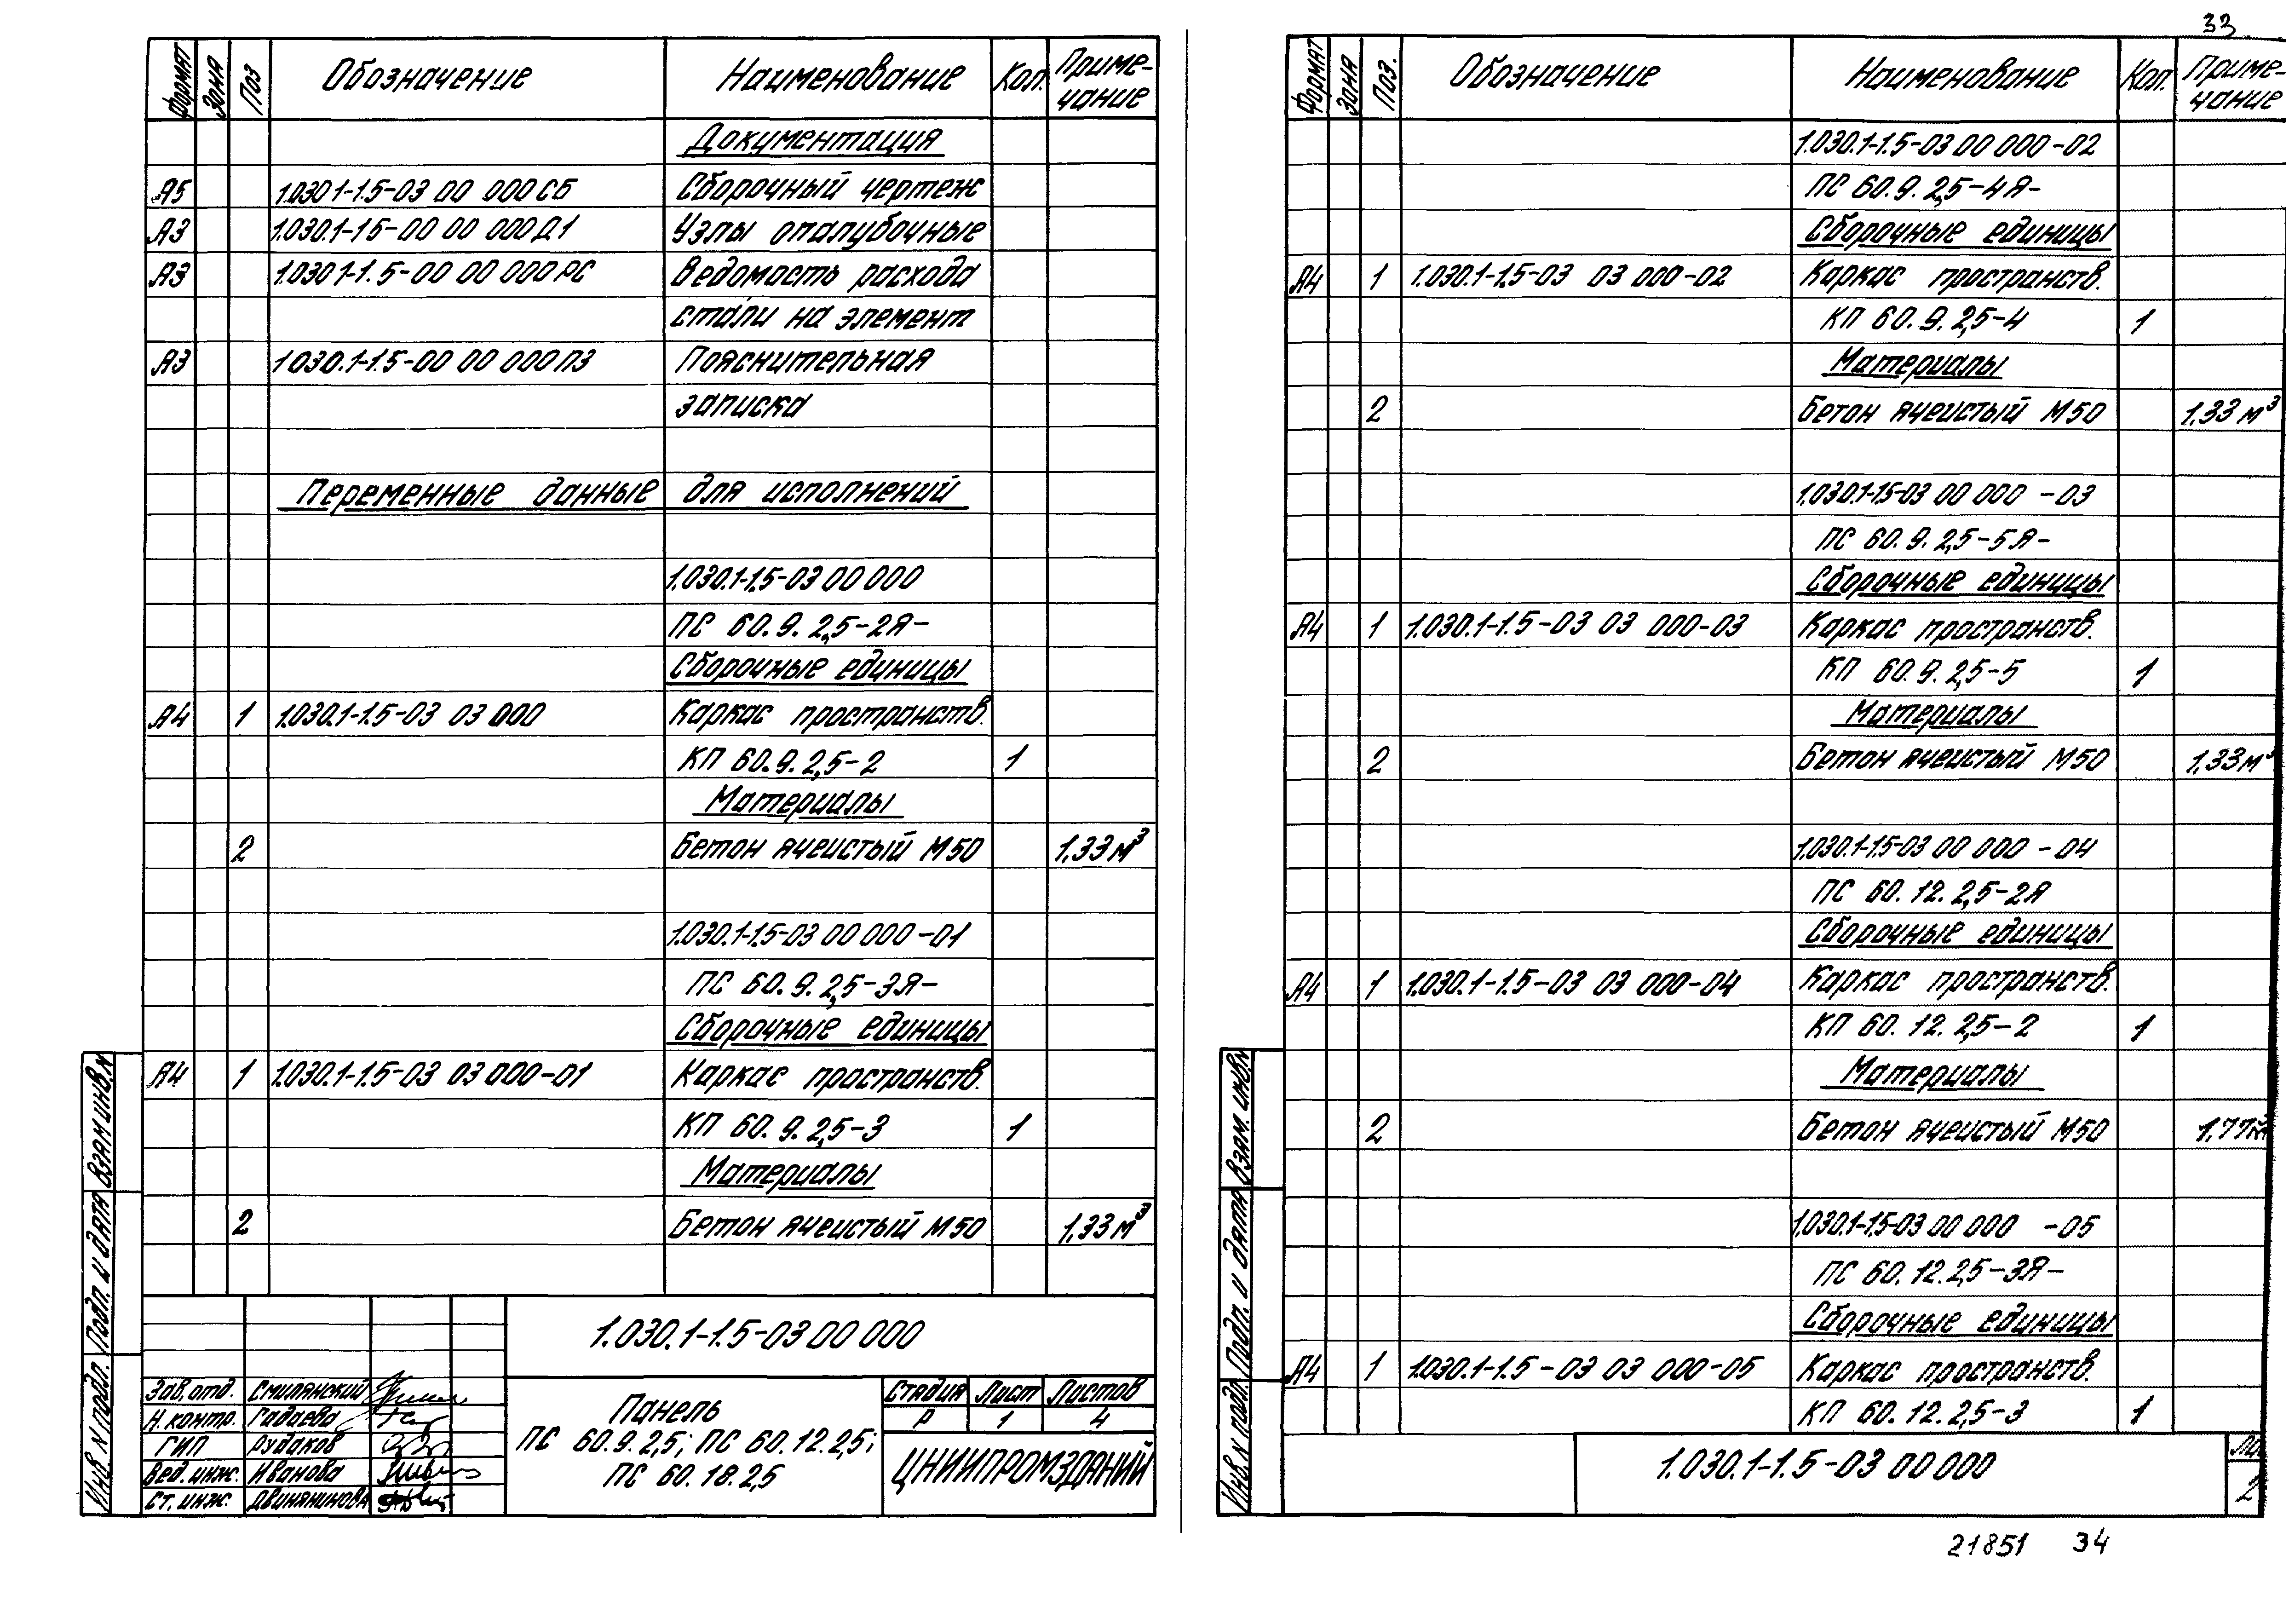 33
Формат Зона Поз Обозначение Наименование Кол. Приме-
чание
Документация
А5 1.030.1-1.5-03 00 000СБ Сборочный чертеж
А3 1.030.1-1.5-00 00 000Д1 Узлы опалубочные
А3 1.030.1-1.5-00 00 000РС Ведомость расхода
стали на элемент
А3 1.030.1-1.5-00 00 000ПЗ Пояснительная
записка
Переменные данные для исполнений
1.030.1-1.5-03 00 000
ПС 60.9.2,5-2Я-
Сборочные единицы
А4 1 1.030.1-1.5-03 03 000 Каркас пространств.
КП 60.9.2,5-2 1
Материалы
2 Бетон ячеистый М50 1,33 м³
1.030.1-1.5-03 00 000-01
ПС 60.9.2,5-3Я-
Сборочные единицы
А4 1 1.030.1-1.5-03 03 000-01 Каркас пространств.
КП 60.9.2,5-3 1
Материалы
2 Бетон ячеистый М50 1,33 м³
Инв. N подл. Подп. и дата Взам инв. N
1.030.1-1.5-03 00 000
Зав. отд. Смилянский
Н. контр. Гадаева
ГИП Рудаков
Вед. инж. Иванова
Ст. инж. Двинянинова
Панель
ПС 60.9.2,5; ПС 60.12.2,5;
ПС 60.18.2,5
Стадия Лист Листов
Р 1 4
ЦНИИПРОМЗДАНИЙ
Формат Зона Поз. Обозначение Наименование Кол. Приме-
чание
1.030.1-1.5-03 00 000-02
ПС 60.9.2,5-4Я-
Сборочные единицы
А4 1 1.030.1-1.5-03 03 000-02 Каркас пространств.
КП 60.9.2,5-4 1
Материалы
2 Бетон ячеистый М50 1,33 м³
1.030.1-1.5-03 00 000 -03
ПС 60.9.2,5-5Я-
Сборочные единицы
А4 1 1.030.1-1.5-03 03 000-03 Каркас пространств.
КП 60.9.2,5-5 1
Материалы
2 Бетон ячеистый М50 1,33 м³
1.030.1-1.5-03 00 000 -04
ПС 60.12.2,5-2Я
Сборочные единицы
А4 1 1.030.1-1.5-03 03 000-04 Каркас пространств.
КП 60.12.2,5-2 1
Материалы
2 Бетон ячеистый М50 1,77
1.030.1-1.5-03 00 000 -05
ПС 60.12.2,5-3Я-
Сборочные единицы
А4 1 1.030.1-1.5-03 03 000-05 Каркас пространств.
КП 60.12.2,5-3 1
Инв. N подл. Подп. и дата Взам. инв. N
1.030.1-1.5-03 00 000
2
21851 34